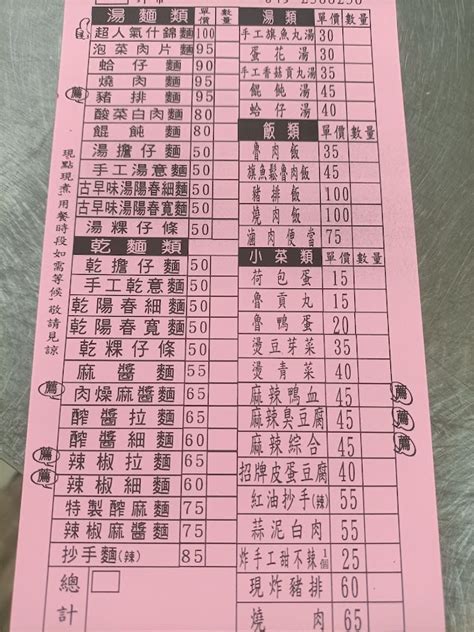 湯麵類 單價 數量
超人氣什錦麵 100
泡菜肉片麵 95
蛤仔麵 90
燒肉麵 95
薦 豬排麵 95
酸菜白肉麵 80
餛飩麵 80
湯擔仔麵 50
手工湯意麵 50
古早味湯陽春細麵 50
古早味湯陽春寬麵 50
湯粿仔條 50
乾麵類
乾擔仔麵 50
手工乾意麵 50
乾陽春細麵 50
乾陽春寬麵 50
乾粿仔條 50
麻醬麵 55
薦 肉燥麻醬麵 65
醡醬拉麵 55
醡醬細麵 60
薦 辣椒拉麵 55
薦 辣椒細麵 60
特製醡麻麵 75
辣椒麻醬麵 75
抄手麵(辣) 85
總計
現點現煮用餐時段如需等候敬請見諒
湯類 單價 數量
手工旗魚丸湯 30
蛋花湯 30
手工香菇貢丸湯 30
餛飩湯 40
蛤仔湯 40
飯類 單價 數量
魯肉飯 35
旗魚鬆魯肉飯 45
豬排飯 100
燒肉飯 100
滷肉便當 75
小菜類 單價 數量
荷包蛋 15
魯貢丸 15
魯鴨蛋 20
燙豆芽菜 35
燙青菜 40
麻辣鴨血 45 薦
麻辣臭豆腐 45 薦
麻辣綜合 45 薦
招牌皮蛋豆腐 40
紅油抄手(辣) 55
蒜泥白肉 55
炸手工甜不辣1個 25
現炸豬排 60
燒肉 65